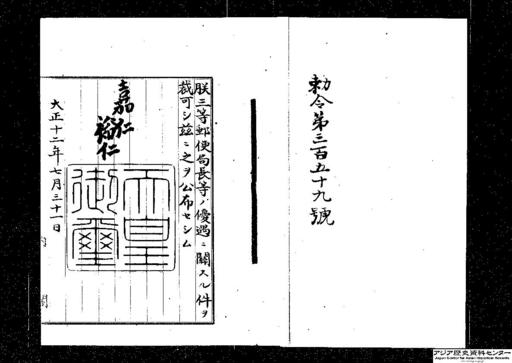 勅令第三百五十九號
朕三等郵便局長等ノ優遇ニ關スル件ヲ
裁可シ茲ニ之ヲ公布セシム
嘉仁
裕仁
天皇
御璽
大正十二年七月三十一日
内閣
アジア歴史資料センター
Japan Center for Asian Historical Records